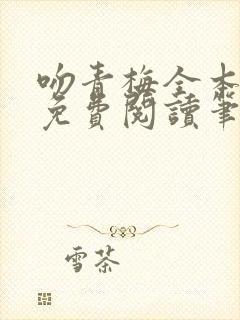 吻青梅全本
免費閱讀筆
雪茶